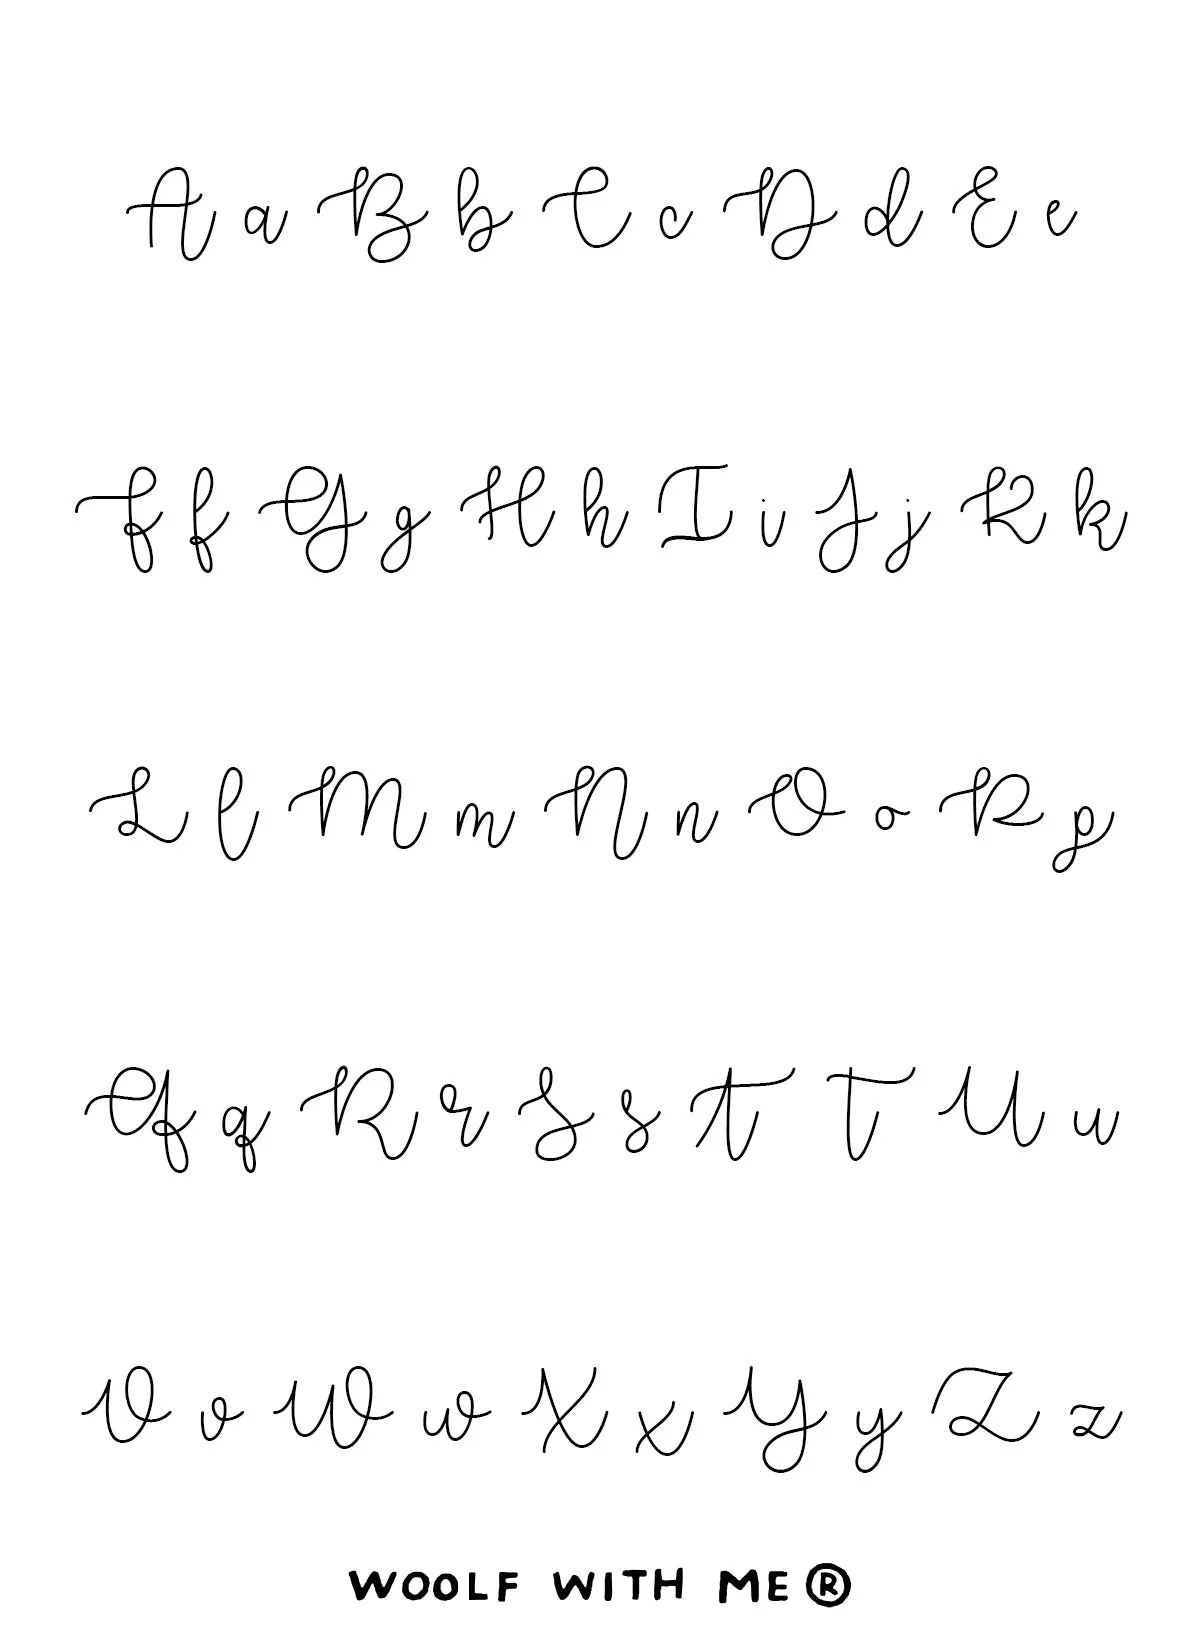 A a B b C c D d E e
F f G g H h I i J j K k
L l M m N n O o P p
Q q R r S s T t U u
V v W w X x Y y Z z
WOOLF WITH ME®